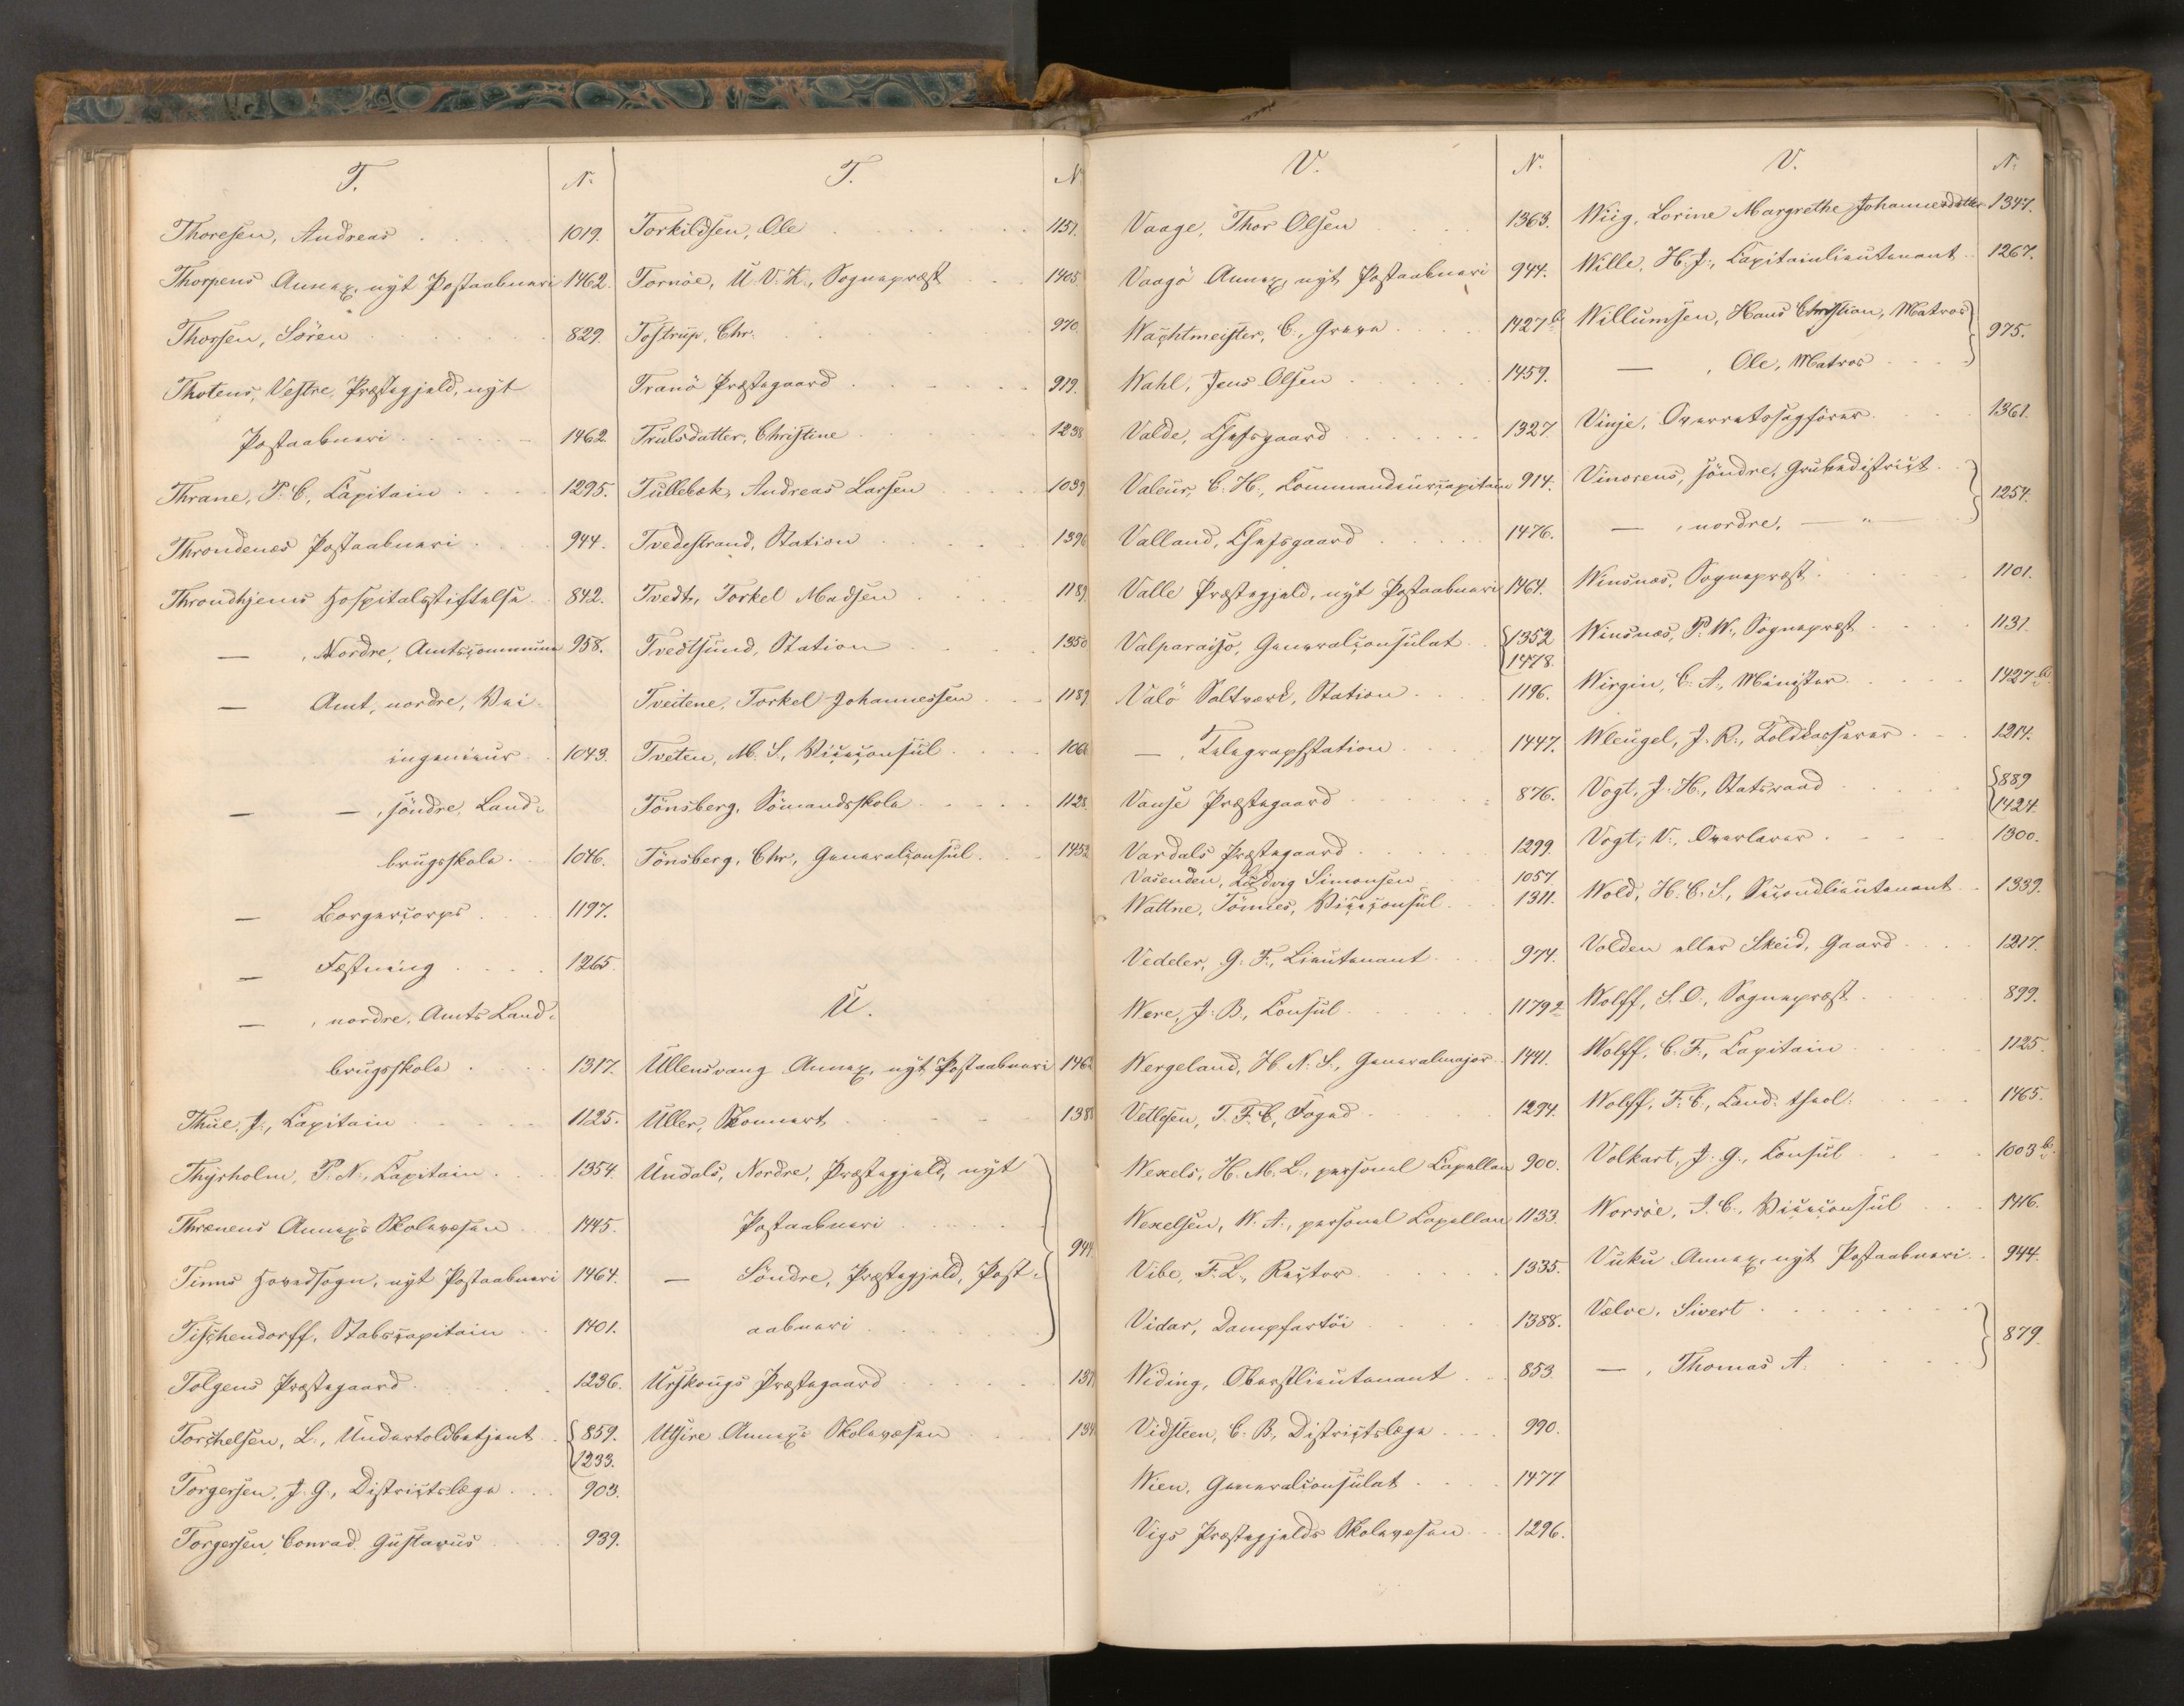 T.
N.
Thoresen, Andreas 1019.
Thorpens Annex, nyt Postaabneri 1462.
Thorsen, Sören 829.
Thotens, Vestre, Præstegjeld, nyt
Postaabneri 1462.
Thrane, P. C., Capitain 1295.
Throndenæs Postaabneri 944.
Throndhjems Hospitalsstiftelse 842.
— , Nordre, Amtscommune 958.
— Amt, nordre, Vei-
ingenieur 1043.
— — , söndre, Land-
brugsskole 1046.
— Borgercorps 1197.
— Fæstning 1265.
— , nordre, Amts Land-
brugsskole 1317.
Thue, J., Capitain 1125.
Thyrholm, P. N., Capitain 1354.
Thrænens Annex's Skolevæsen 1445.
Tinns Hovedsogn, nyt Postaabneri 1464.
Tischendorff, Stabscapitain 1401.
Tolgens Præstegaard 1236.
Torchelsen, L., Undertoldbetjent 859.
1233.
Torgersen, J. G., Districtslæge 903.
Torgersen, Conrad Gustavus 939.
T.
N.
Torkildsen, Ole 1151.
Tornöe, U. V. K., Sognepræst 1405
Tostrup, Chr. 970.
Tranö Præstegaard 919.
Trulsdatter, Christine 1238
Tullebek, Andreas Larsen 1039
Tvedestrand, Station 1396
Tvedt, Torkel Madsen 1189.
Tvedtsund, Station 1350
Tveitene, Torkel Johannessen 1189.
Tveten, M. S., Viceconsul 1066
Tönsberg, Sömandsskole 1128.
Tönsberg, Chr., Generalconsul 1452
U.
Ullensvang Annex, nyt Postaabneri 1462
Uller, Skonnert 1388
Undals, Nordre, Præstegjeld, nyt
Postaabneri
944.
— Söndre, Præstegjeld, Post-
aabneri
Urskougs Præstegaard 137
Utsire Annex's Skolevæsen 134
V.
N.
Vaage, Thor Olsen 1363.
Vaagö Annex, nyt Postaabneri 944.
Wachtmeister, C., Greve 1427 b
Wahl, Jens Olsen 1459.
Valde, Chefsgaard 1327.
Valeur, C. H., Commandeurcapitain 914.
Valland, Chefsgaard 1476.
Valle Præstegjeld, nyt Postaabneri 1464.
Valparaiso, Generalconsulat 1352
1478.
Valö Saltværk, Station 1196.
— , Telegraphstation 1447.
Vanse Præstegaard 876.
Vardals Præstegaard 1299.
Vasenden, Ludvig Simonsen 1057.
Wattne, Tönnes, Viceconsul 1311.
Vedeler, G. F., Lieutenant 974.
Were, J. B., Consul 1179 2
Wergeland, H. N. S., Generalmajor 1441.
Vetlesen, T. F. C., Foged 1294.
Wexels, H. M. L., personel Capellan 900.
Wexelsen, W. A., personel Capellan 1133.
Vibe, F. L., Rector 1335.
Vidar, Dampfartöi 1388.
Widing, Oberstlieutenant 853.
Vidsteen, C. B., Districtslæge 990.
Wien, Generalconsulat 1477
Vigs Præstegjelds Skolevæsen 1296.
V.
N.
Wiig, Lorine Margrethe Johannesdatter 1347.
Wille, H. J., Capitainlieutenant 1267.
Willumsen, Hans Christian, Matros
975.
— , Ole, Matros
Vinje, Overretssagförer 1361.
Vinorens, söndre, Grubedistrict
1254.
— , nordre, — "
Winsnæs, Sognepræst 1101.
Winsnæs, P. W., Sognepræst 1131.
Wirgin, C. A., Minister 1427 b.
Wleugel, J. R., Toldkasserer 1214.
Vogt, J. H., Statsraad 889
1424.
Vogt, V., Overlærer 1300.
Wold, H. C. S., Secondlieutenant 1339.
Volden eller Skeid, Gaard 1217.
Wolff, S. O., Sognepræst 899.
Wolff, C. F., Capitain 1125.
Wolff, F. C., Cand. theol. 1465.
Volkart, J. G., Consul 1003 b.
Worsöe, J. C., Viceconsul 1416.
Vuku Annex, nyt Postaabneri 944.
Vælve, Sivert
879.
— , Thomas A.